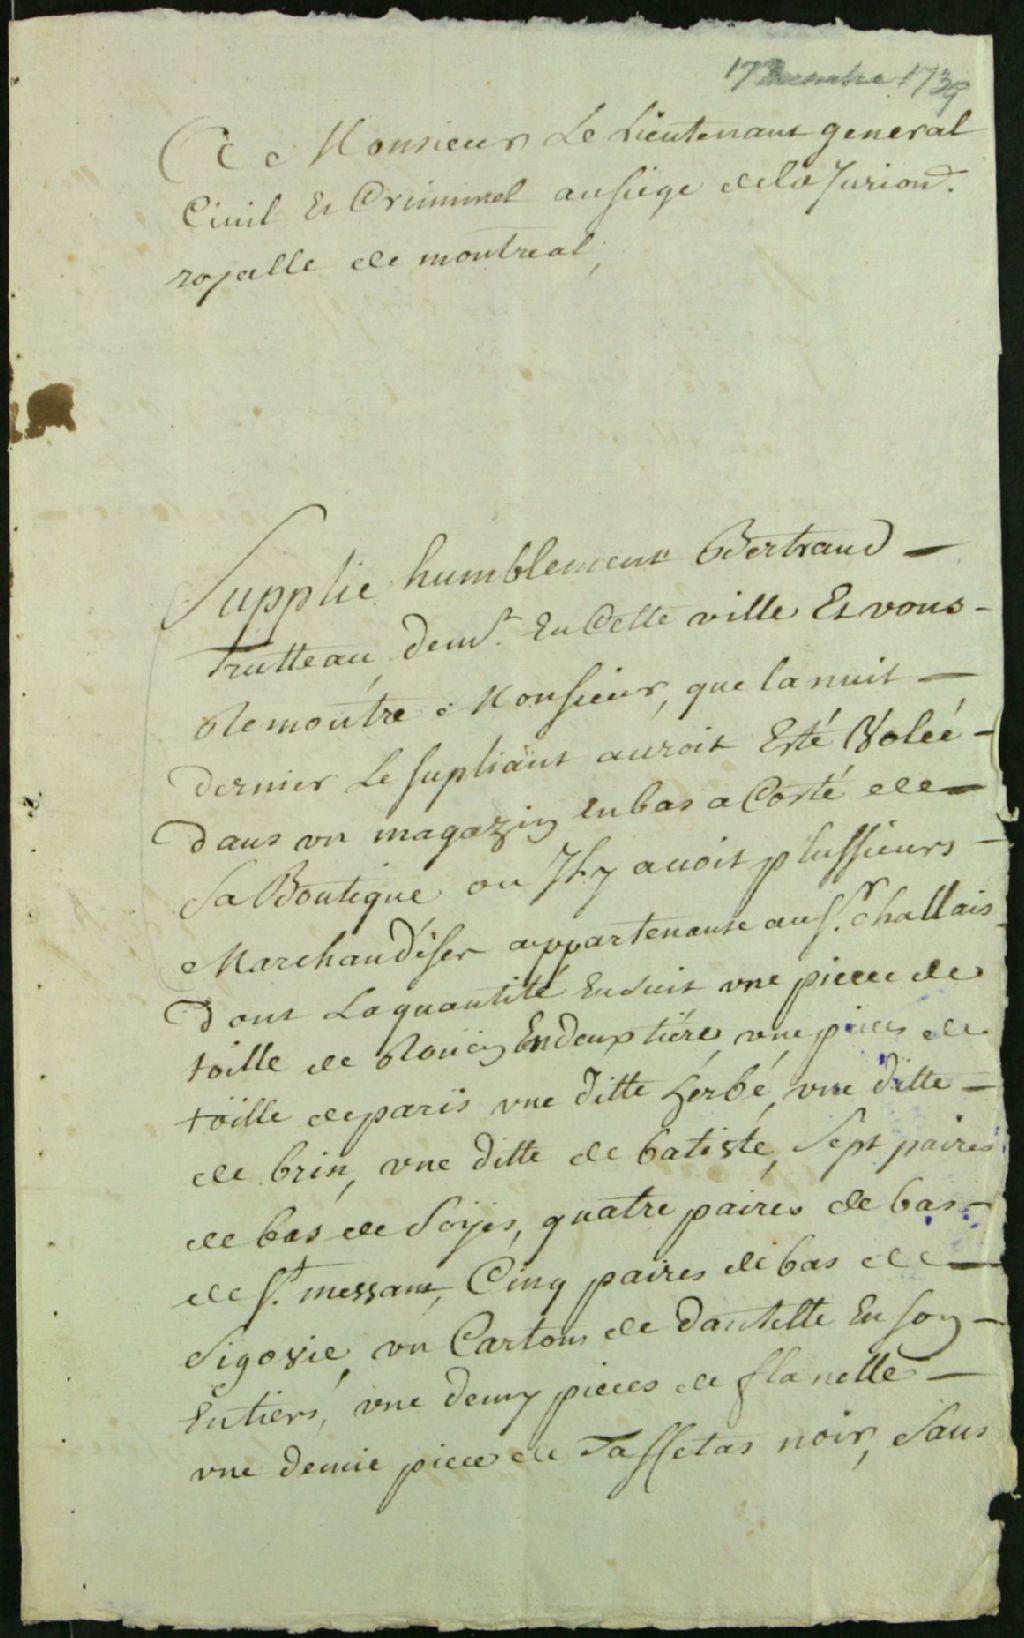 17 Decembre 1739
A Monsieur Le Lieutenant general
Ciuil Et Criminel au siege de la Jurion.
royalle de montreal,
Supplie humblement Bertrand
Trutteau, demt. En Cette ville Et vous
Remontre Monsieur, que la nuit
dernier Le supliant auroit Esté Volée
dans vn magazin en bas a Costé de
Sa Boutique ou Il y auoit plussieurs
Marchandises appartenante au Sr. challais
dont La quantité Ensuit vne piece de
toille de Roüen En deux tiére, vne pieces de
toille de paris vne ditte herbé, vne ditte
de brin, vne ditte de batiste, Sept paires
de bas de Soÿes, quatre paires de bas
de St. messant, Cinq paires de bas de
Sigovie, vn Cartons de dantelle En son
Entiers, vne demy pieces de flanelle
vne demie piece de Taffetas noir, Sans